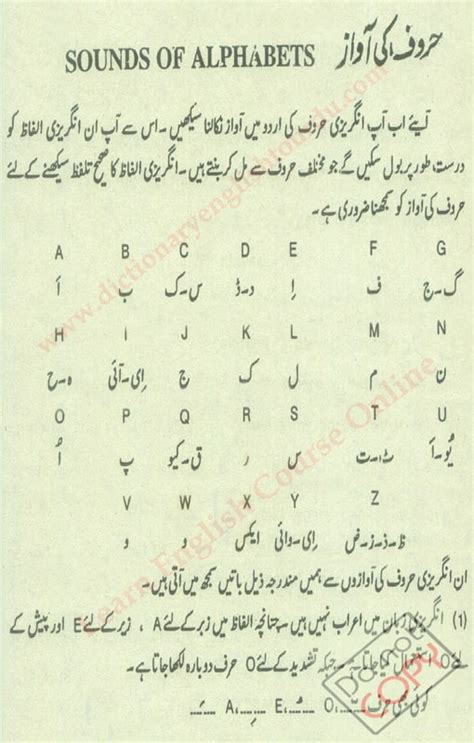 SOUNDS OF ALPHABETS حروف کی آواز
آیئے اب آپ انگریزی حروف کی اردو میں آواز نکالنا سیکھیں۔ اس سے آپ ان انگریزی الفاظ کو
درست طور پر بول سکیں گے جو مختلف حروف سے مل کر بنتے ہیں۔ انگریزی الفاظ کا صحیح تلفظ سیکھنے کے لئے
حروف کی آواز کو سمجھنا ضروری ہے۔
A B C D E F G
گ۔ج ف اِ د۔ڈ س۔ک ب اَ
H I J K L M N
ن م ل ک ج اِی۔آئی ہ۔ح
O P Q R S T U
یُو۔اَ ٹ۔ت س ر ق۔کیو پ اُ
V W X Y Z
ظ۔ذ۔ز۔ض اِی۔وائی ایکس و و
ان انگریزی حروف کی آوازوں سے ہمیں مندرجہ ذیل باتیں سمجھ میں آتی ہیں۔
(1) انگریزی زبان میں اعراب نہیں ہیں۔ چنانچہ الفاظ میں زبر کے لئے A ، زیر کے لئے E اور پیش کے
لئے O استعمال کیا جاتا ہے۔ جبکہ تشدید کے لئے O حرف دوبارہ لکھا جاتا ہے۔
کوئی بھی حرف O، E، A،
www.dictionaryenglishtourdu.com
Learn English Course Online
Do not
COPY